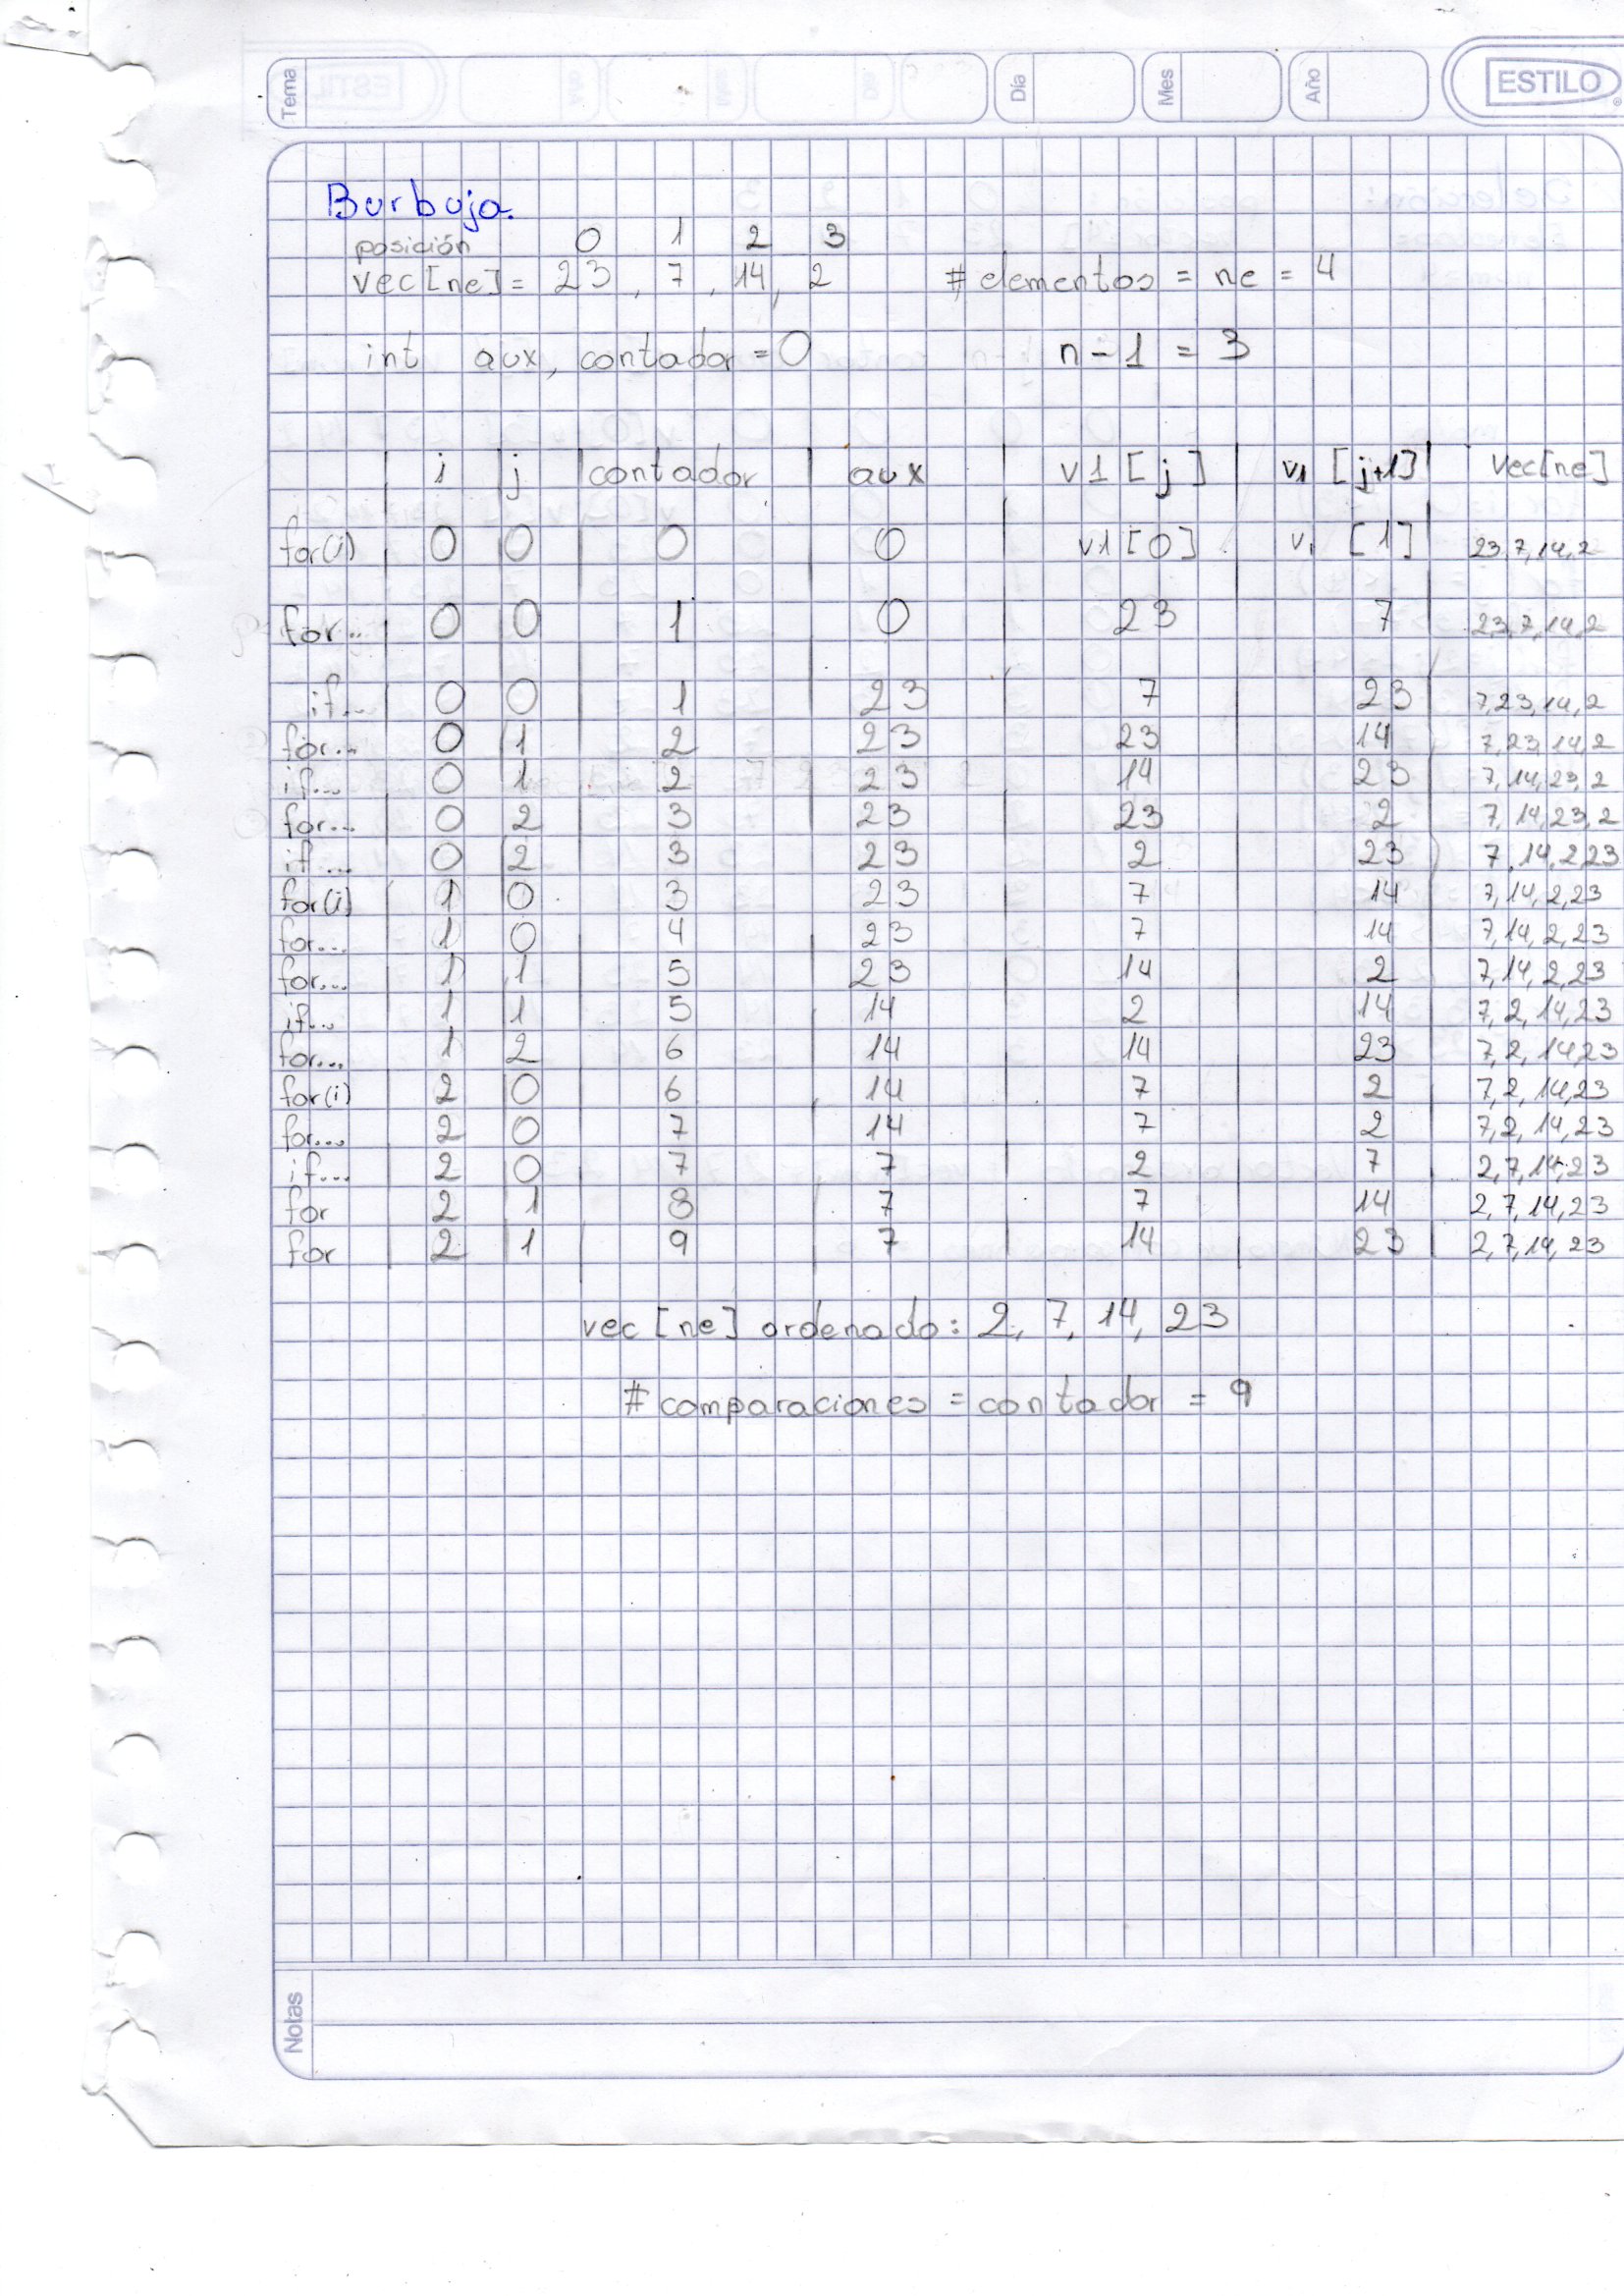 Tema Día Mes Año ESTILO
Burbuja.
posición 0 1 2 3
vec[ne] = 23, 7, 14, 2 # elementos = ne = 4
int aux, contador = 0 n - 1 = 3
i j contador aux v1 [j] v1 [j+1] Vec[ne]
for(i) 0 0 0 0 v1 [0] v1 [1] 23,7,14,2
for.. 0 0 1 0 23 7 23,7,14,2
if... 0 0 1 23 7 23 7,23,14,2
for... 0 1 2 23 23 14 7,23,14,2
if... 0 1 2 23 14 23 7,14,23,2
for... 0 2 3 23 23 2 7,14,23,2
if... 0 2 3 23 2 23 7,14,2,23
for(i) 1 0 3 23 7 14 7,14,2,23
for... 1 0 4 23 7 14 7,14,2,23
for... 1 1 5 23 14 2 7,14,2,23
if... 1 1 5 14 2 14 7,2,14,23
for... 1 2 6 14 14 23 7,2,14,23
for(i) 2 0 6 14 7 2 7,2,14,23
for... 2 0 7 14 7 2 7,2,14,23
if... 2 0 7 7 2 7 2,7,14,23
for 2 1 8 7 7 14 2,7,14,23
for 2 1 9 7 14 23 2,7,14,23
vec[ne] ordenado: 2, 7, 14, 23
# comparaciones = contador = 9
Notas